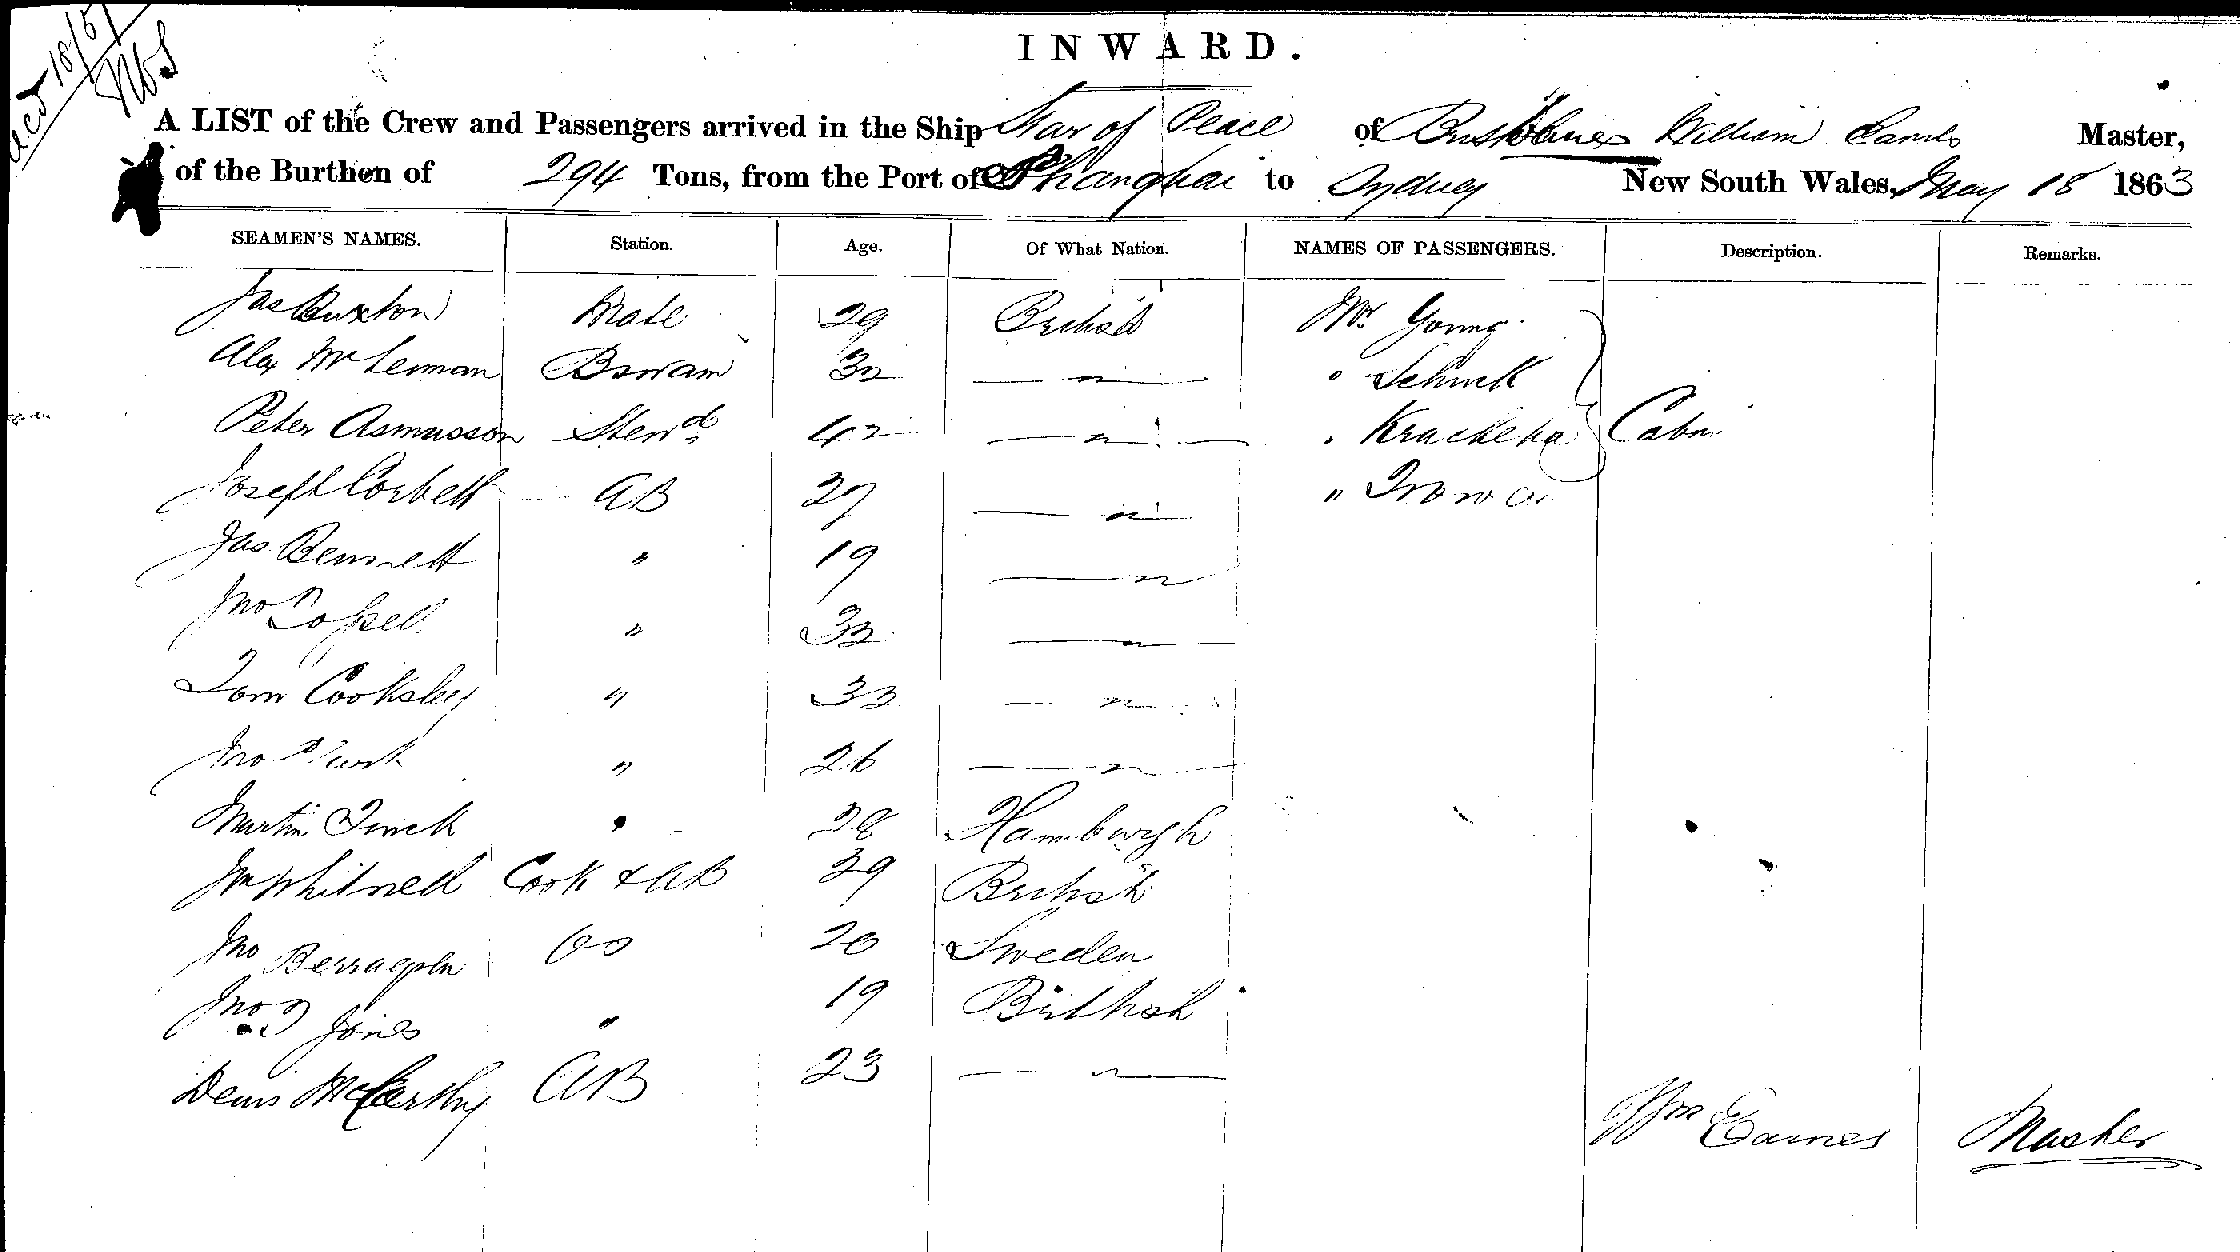 INWARD.
A LIST of the Crew and Passengers arrived in the Ship Star of Peace of William Eames Master,
of the Burthen of 294 Tons, from the Port of Shanghai to Sydney New South Wales, May 18 1863
SEAMEN'S NAMES. Station. Age. Of What Nation. NAMES OF PASSENGERS. Description. Remarks.
Jas Buxton Mate 29 British Mr Young
Alex McLennan Bswain 32 " " Schuck
Peter Asmusson Stewd 42 " " Cabin
Joseph Corbett AB 27 " "
Jas Bennett " 19 "
Jno " 32 "
Tom Cooksley " 33 "
Jno " 26 "
Martin Finck " 28 Hamburgh
Wm Whitnell Cook & AB 29 British
Jno OS 20 Sweden
Jno Jones " 19 British
Denis McCarthy AB 23 "
Wm Eames Master